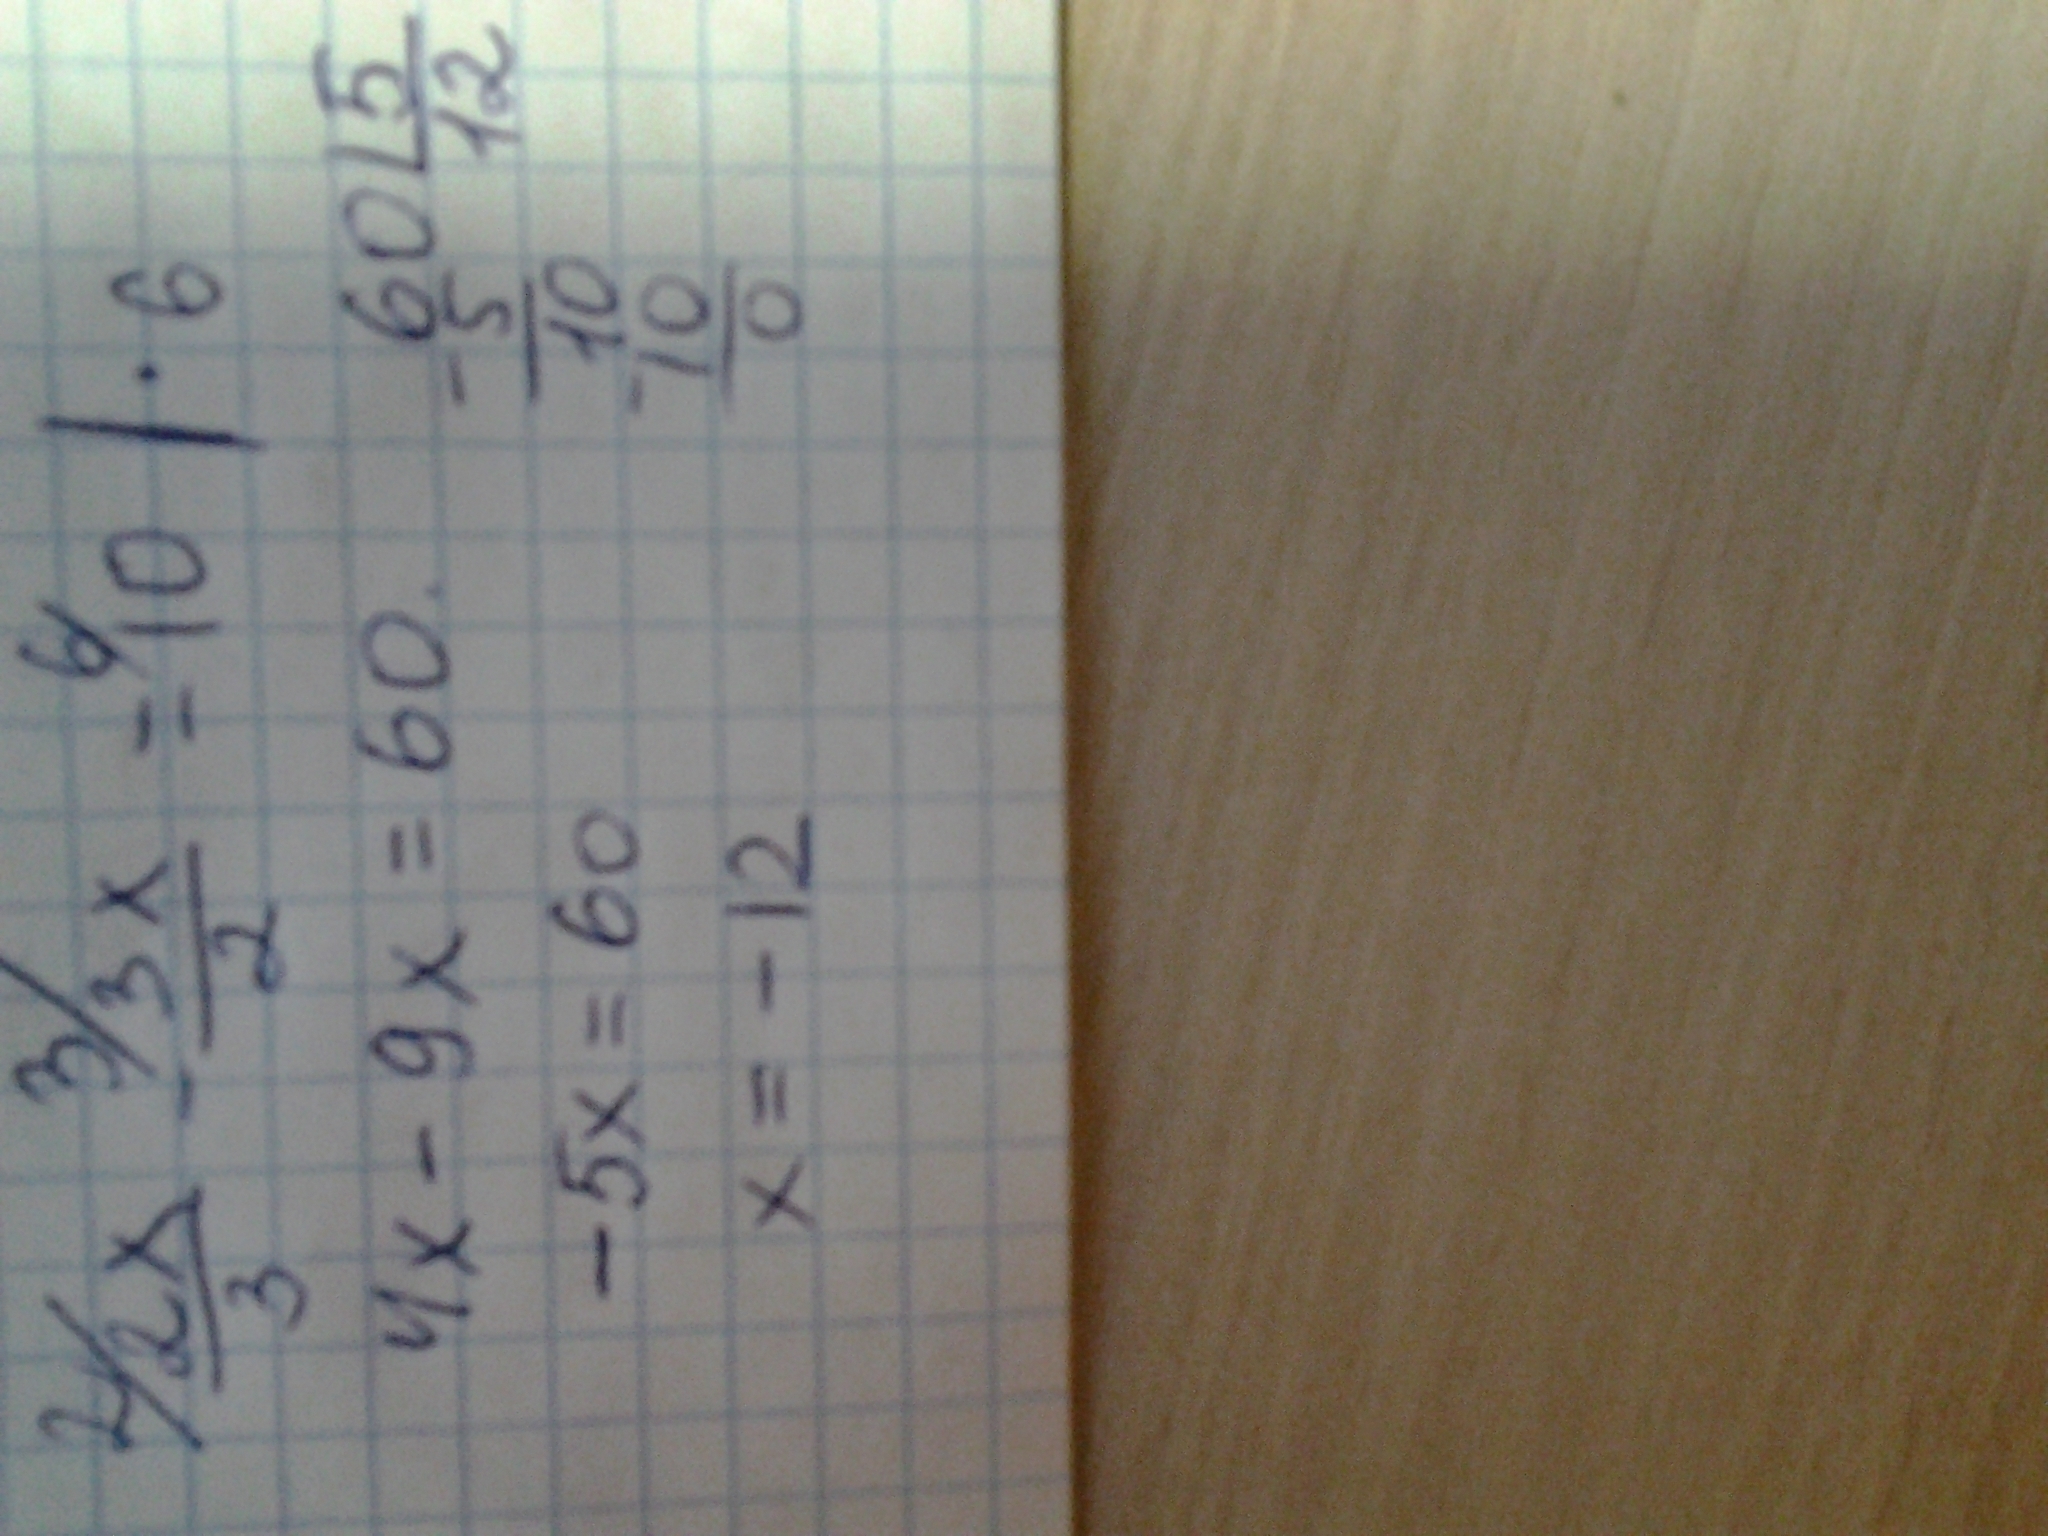 2/ 2x/3 - 3/ 3x/2 = 6/ 10 | · 6
4x - 9x = 60.
-5x = 60
x = -12
60 | 5
-5 | 12
10
-10
0